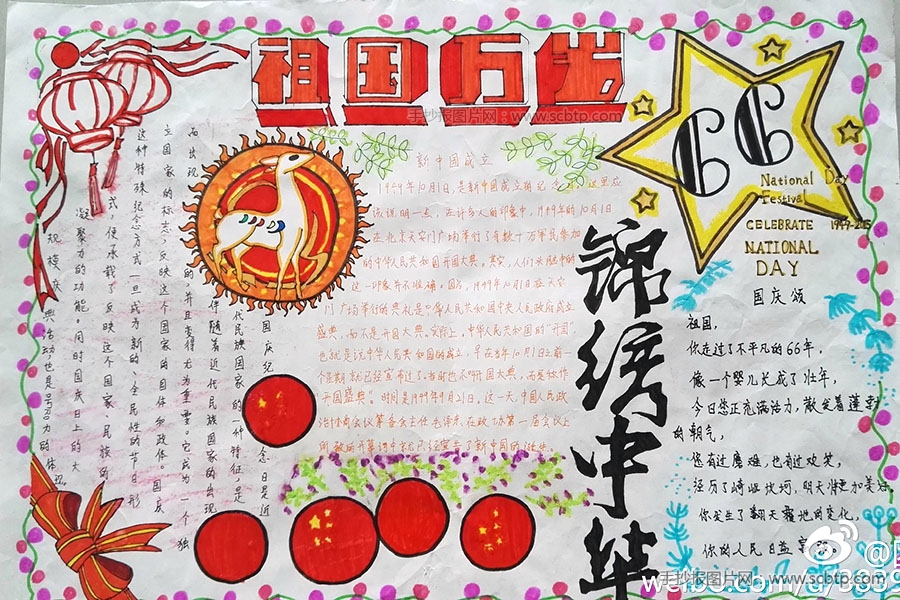 祖国万岁
手抄报图片网：www.scbtp.com
66
National Day
Festival
CELEBRATE
NATIONAL
DAY
新中国成立
1949年10月1日是新中国成立的纪念
这里应
该说明一点，在许多人的印象中，1949年的10月1日
在北京天安门广场举行了有数十万军民参加
的中华人民共和国开国大典。其实，人们头脑中的
这一印象并不准确。因为，1949年10月1日在天安
门广场举行的典礼是中华人民共和国中央人民政府成立
盛典，而不是开国大典。实际上，中华人民共和国的“开国”，
也就是说中华人民共和国的成立，早在当年10月1日之前一
个星期就已经宣布过了。当时也不叫开国大典，而是称作
开国盛典”。时间是1949年9月21日。这一天，中国人民政
治协商会议筹备会主任毛泽东在政协第一届会议上
的开幕词中就已经宣告了新中国的诞生。
国庆纪
念日是近
代民族国家的一种特征，是
伴随着近代民族国家的出现
而出现
的，并且变得尤为重要。它成为一个独
立国家的标志，反映这个国家的国体和政体。国庆
这种特殊纪念方式一旦成为新的、全民性的节日形
式，便承载了反映这个国家、民族的
凝聚力的功能。同时国庆日上的大
规模庆典活动，也是号召力的体现。
锦绣中华
国庆颂
祖国，
你走过了不平凡的66年，
像一个婴儿长成了壮年，
今日您正充满活力，散发着蓬勃
的朝气，
您有过磨难，也有过欢笑，
经历了崎岖坎坷，明天将更加美好，
你发生了翻天覆地的变化，
你的人民日益富
手抄报图片网：www.scbtp.com